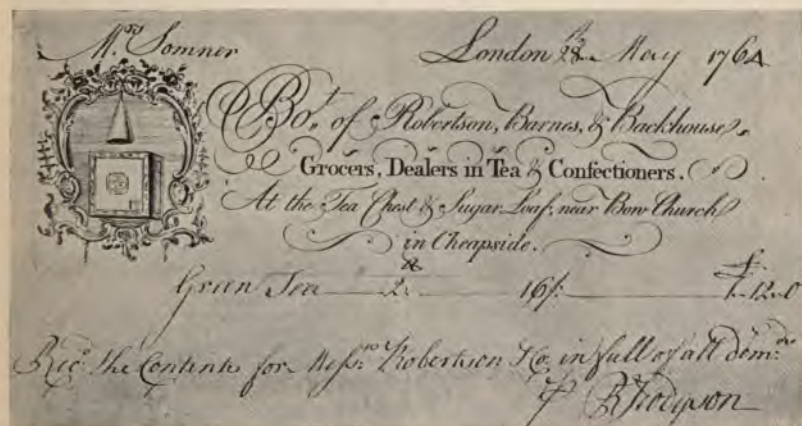 Mrs Somner London 28th May 1764
Bot. of Robertson, Barnes, & Backhouse,
Grocers, Dealers in Tea & Confectioners.
At the Tea Chest & Sugar Loaf, near Bow Church
in Cheapside.
℔ £
Green Tea 2 16/. 1.12.0
Recd. the Contents for Messrs Robertson & Co. in full of all demds
R Hodgson